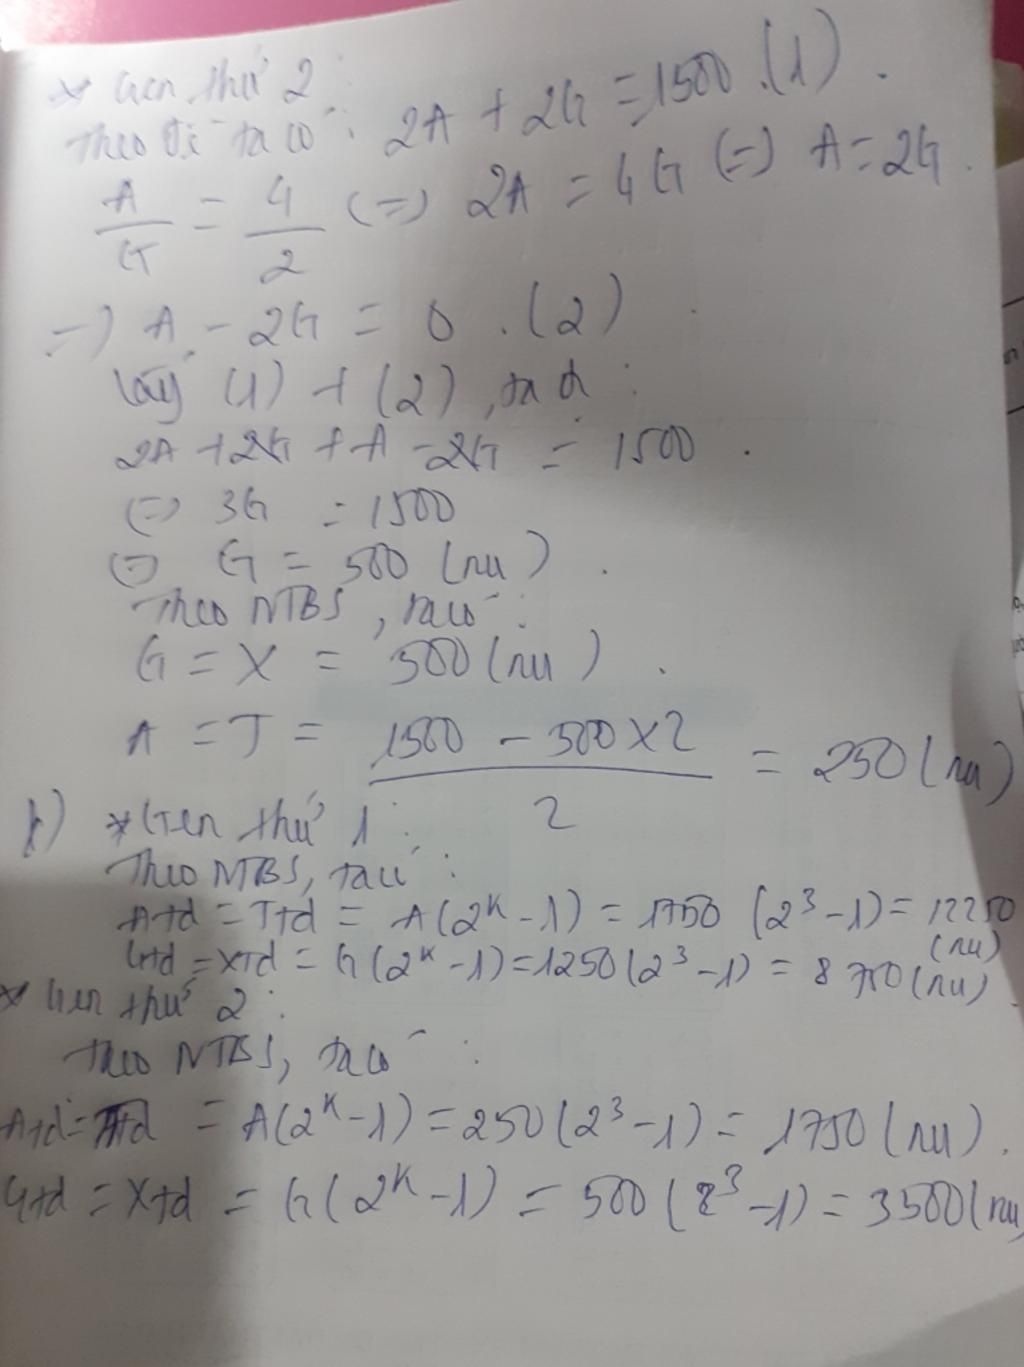 * Gen thứ 2:
Theo đề ta có: 2A + 2G = 1500 (1).
A/G = 4/2 (=) 2A = 4G (=) A = 2G.
=) A - 2G = 0. (2)
Lấy (1) + (2), ta có:
2A + 2G + A - 2G = 1500.
(=) 3G = 1500
(=) G = 500 (nu).
Theo NTBS, ta có:
G = X = 500 (nu).
A = T = (1500 - 500 x 2)/2 = 250 (nu)
) * Gen thứ 1:
Theo NTBS, ta có:
Atd = Ttd = A(2^k - 1) = 1750 (2^3 - 1) = 12250 (nu)
Gtd = Xtd = G(2^k - 1) = 1250 (2^3 - 1) = 8750 (nu).
* Gen thứ 2:
Theo NTBS, ta có:
Atd = Ttd = A(2^k - 1) = 250 (2^3 - 1) = 1750 (nu).
Gtd = Xtd = G(2^k - 1) = 500 (2^3 - 1) = 3500 (nu